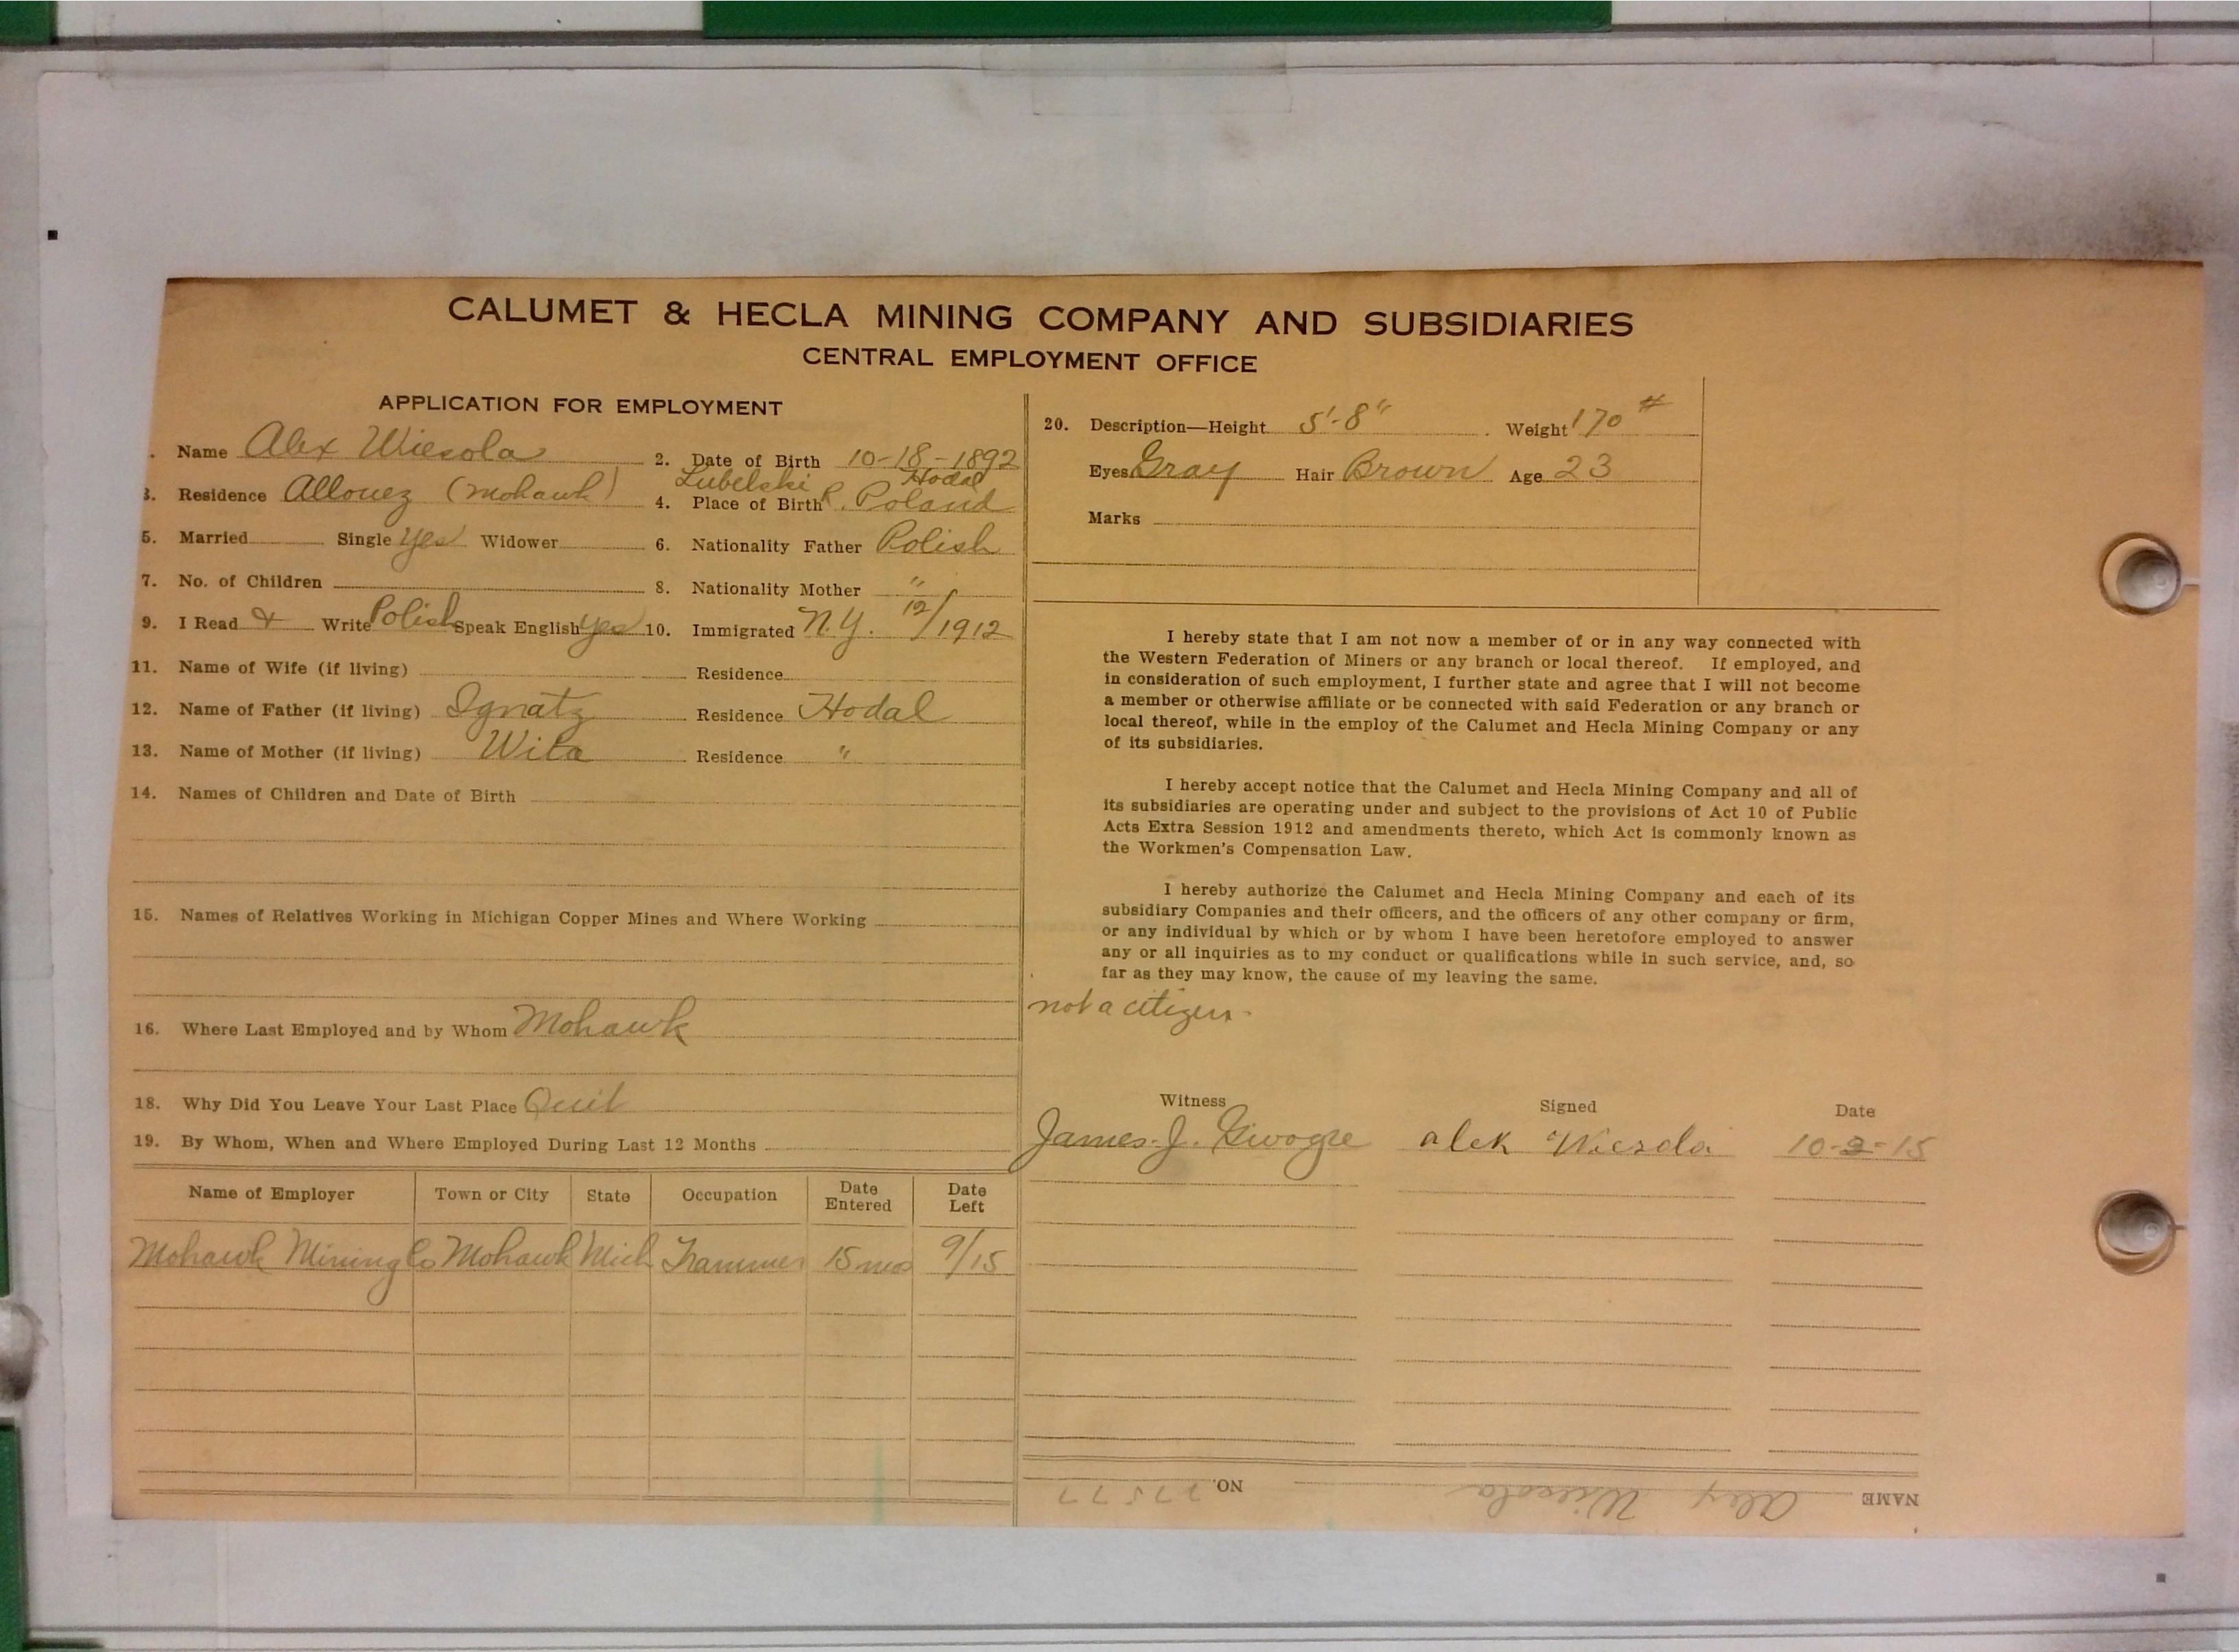 CALUMET & HECLA MINING COMPANY AND SUBSIDIARIES
CENTRAL EMPLOYMENT OFFICE
APPLICATION FOR EMPLOYMENT
. Name Alex Wiesola 2. Date of Birth 10-18-1892
Lubelski Hodal
3. Residence Allouez (Mohawk) 4. Place of Birth R. Poland
5. Married Single yes Widower 6. Nationality Father Polish
7. No. of Children 8. Nationality Mother "
9. I Read & Write Polish Speak English yes 10. Immigrated N.Y. 12/1912
11. Name of Wife (if living) Residence
12. Name of Father (if living) Ignatz Residence Hodal
13. Name of Mother (if living) Residence "
14. Names of Children and Date of Birth
15. Names of Relatives Working in Michigan Copper Mines and Where Working
16. Where Last Employed and by Whom Mohawk
18. Why Did You Leave Your Last Place Quit
19. By Whom, When and Where Employed During Last 12 Months
Name of Employer Town or City State Occupation Date Entered Date Left
Mohawk Mining Co Mohawk Mich Trammer 15 mos 9/15
20. Description—Height 5'-8" . Weight 170 #
Eyes Gray Hair Brown Age 23
Marks
I hereby state that I am not now a member of or in any way connected with
the Western Federation of Miners or any branch or local thereof. If employed, and
in consideration of such employment, I further state and agree that I will not become
a member or otherwise affiliate or be connected with said Federation or any branch or
local thereof, while in the employ of the Calumet and Hecla Mining Company or any
of its subsidiaries.
I hereby accept notice that the Calumet and Hecla Mining Company and all of
its subsidiaries are operating under and subject to the provisions of Act 10 of Public
Acts Extra Session 1912 and amendments thereto, which Act is commonly known as
the Workmen's Compensation Law.
I hereby authorize the Calumet and Hecla Mining Company and each of its
subsidiary Companies and their officers, and the officers of any other company or firm,
or any individual by which or by whom I have been heretofore employed to answer
any or all inquiries as to my conduct or qualifications while in such service, and, so
far as they may know, the cause of my leaving the same.
not a citizen.
Witness Signed Date
James J. alek Wiesola 10-2-15
NAME Alex Wiesola NO. 27577